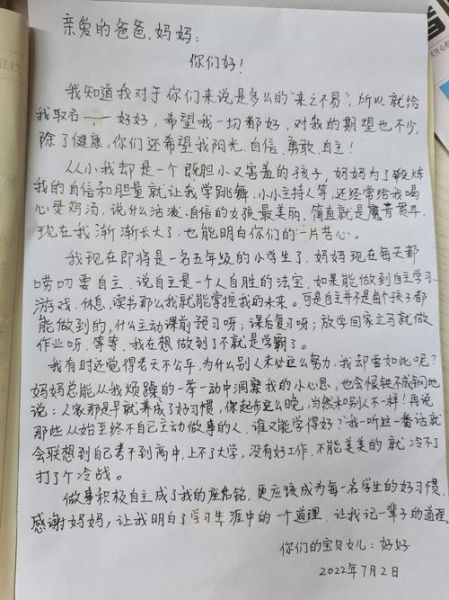 亲爱的爸爸、妈妈：
你们好！
我知道我对于你们来说是多么的“来之不易”，所以就给
我取名 好好，希望我一切都好，对我的期望也不少，
除了健康，你们还希望我阳光、自信、勇敢、自主！
从小我却是一个既胆小又害羞的孩子，妈妈为了锻炼
我的自信和胆量就让我学跳舞、小小主持人等，还经常给我喝
心灵鸡汤，说什么活泼、自信的女孩最美丽，简直就是魔音贯耳，
现在我渐渐长大了，也能明白你们的一片苦心。
我现在即将是一名五年级的小学生了，妈妈现在每天都
唠叨要自主，说自主是一个人自胜的法宝，如果能做到自主学习、
游戏、休息、读书那么我就能掌控我的未来。可是自主并不是每个孩子都
能做到的，什么主动课前预习呀；课后复习呀；放学回家立马就做
作业呀，等等，我在想做到了不就是学霸了。
我有时还觉得老天不公平，为什么别人未必这么努力，我却要如此呢？
妈妈总能从我烦躁的一举一动中洞察我的小心思，也会恨铁不成钢地
说：人家那是早就养成了好习惯，你起步这么晚，当然和别人不一样！再说
那些从始至终不自己主动做事的人，谁又能学得好？”我一听这一番话就
会联想到自己考不到高中，上不了大学，没有好工作，不能美美的就冷不丁
打了个冷战。
做事积极自主成了我的座右铭，更应该成为每一名学生的好习惯，
感谢妈妈，让我明白了学习生涯中的一个道理，让我记一辈子的道理。
你们的宝贝女儿：好好
2022年7月2日